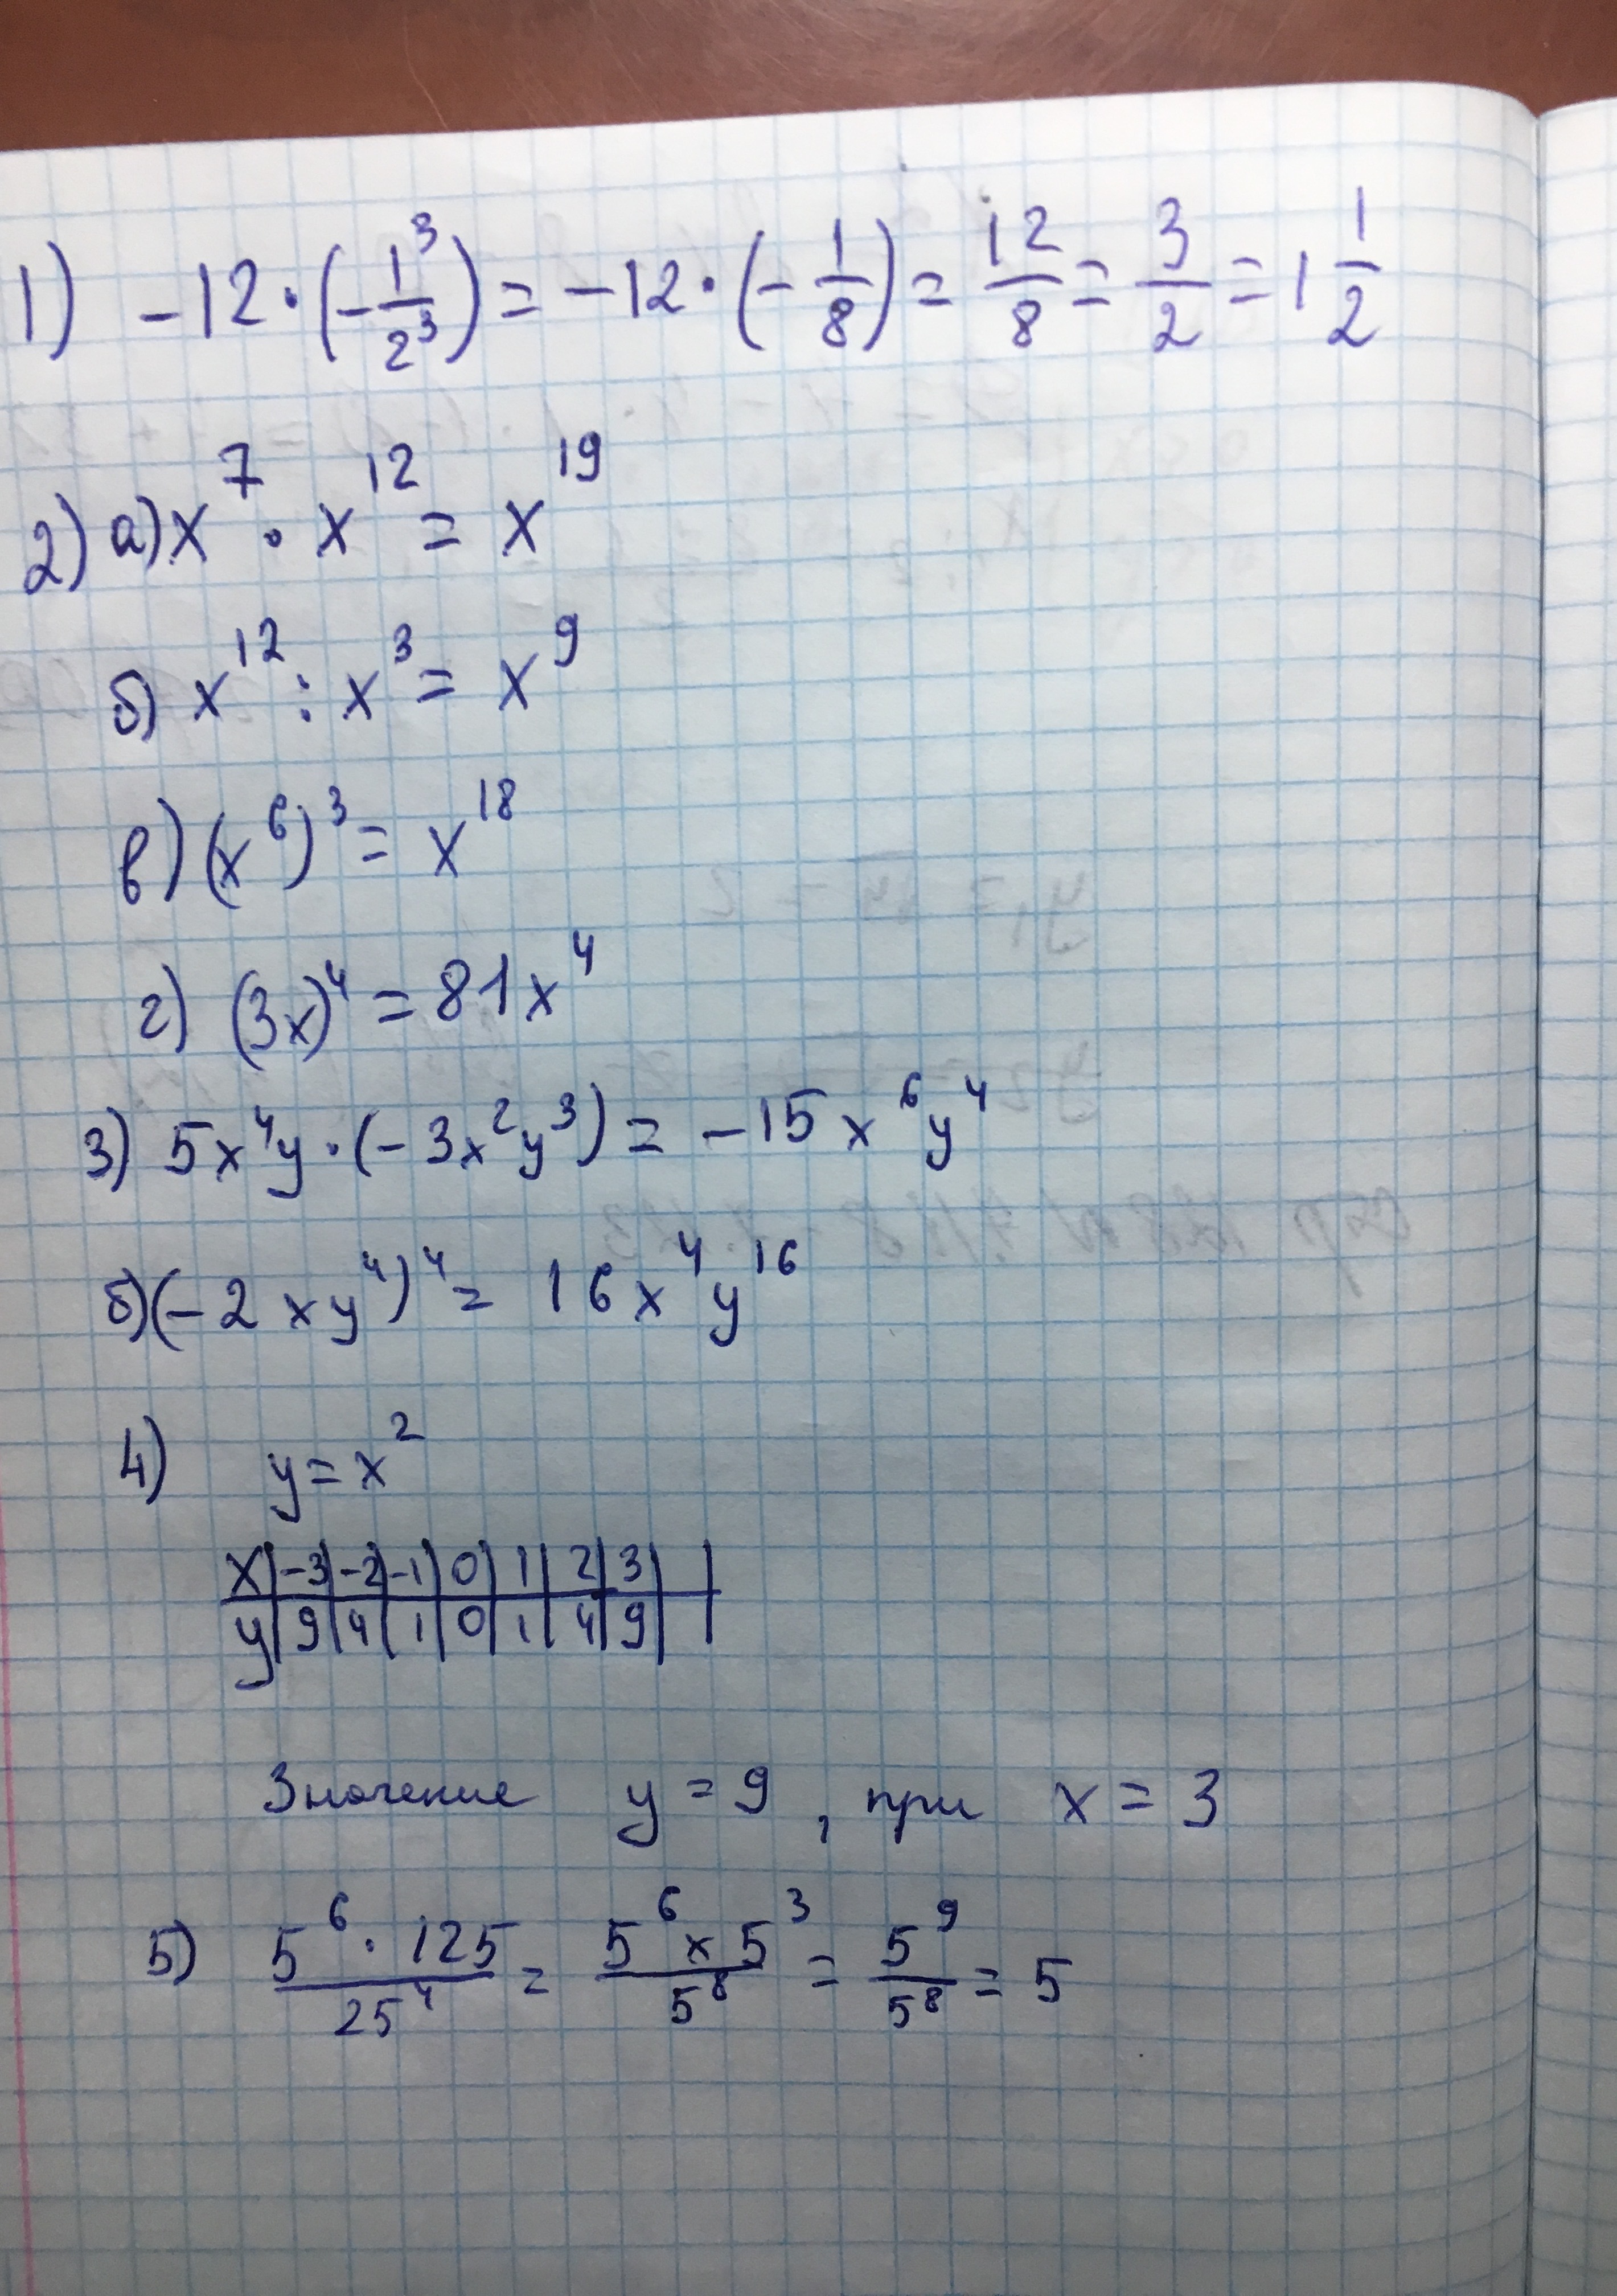 1) -12·(-1³/2³)=-12·(-1/8)=12/8=3/2=1 1/2
2) а) x⁷·x¹²=x¹⁹
б) x¹²:x³=x⁹
в) (x⁶)³=x¹⁸
г) (3x)⁴=81x⁴
3) 5x⁴y·(-3x²y³)=-15x⁶y⁴
б) (-2xy⁴)⁴=16x⁴y¹⁶
4) y=x²
x|-3|-2|-1|0|1|2|3|
y|9|4|1|0|1|4|9|
Значение y=9, при x=3
5) 5⁶·125/25⁴=5⁶x5³/5⁸=5⁹/5⁸=5